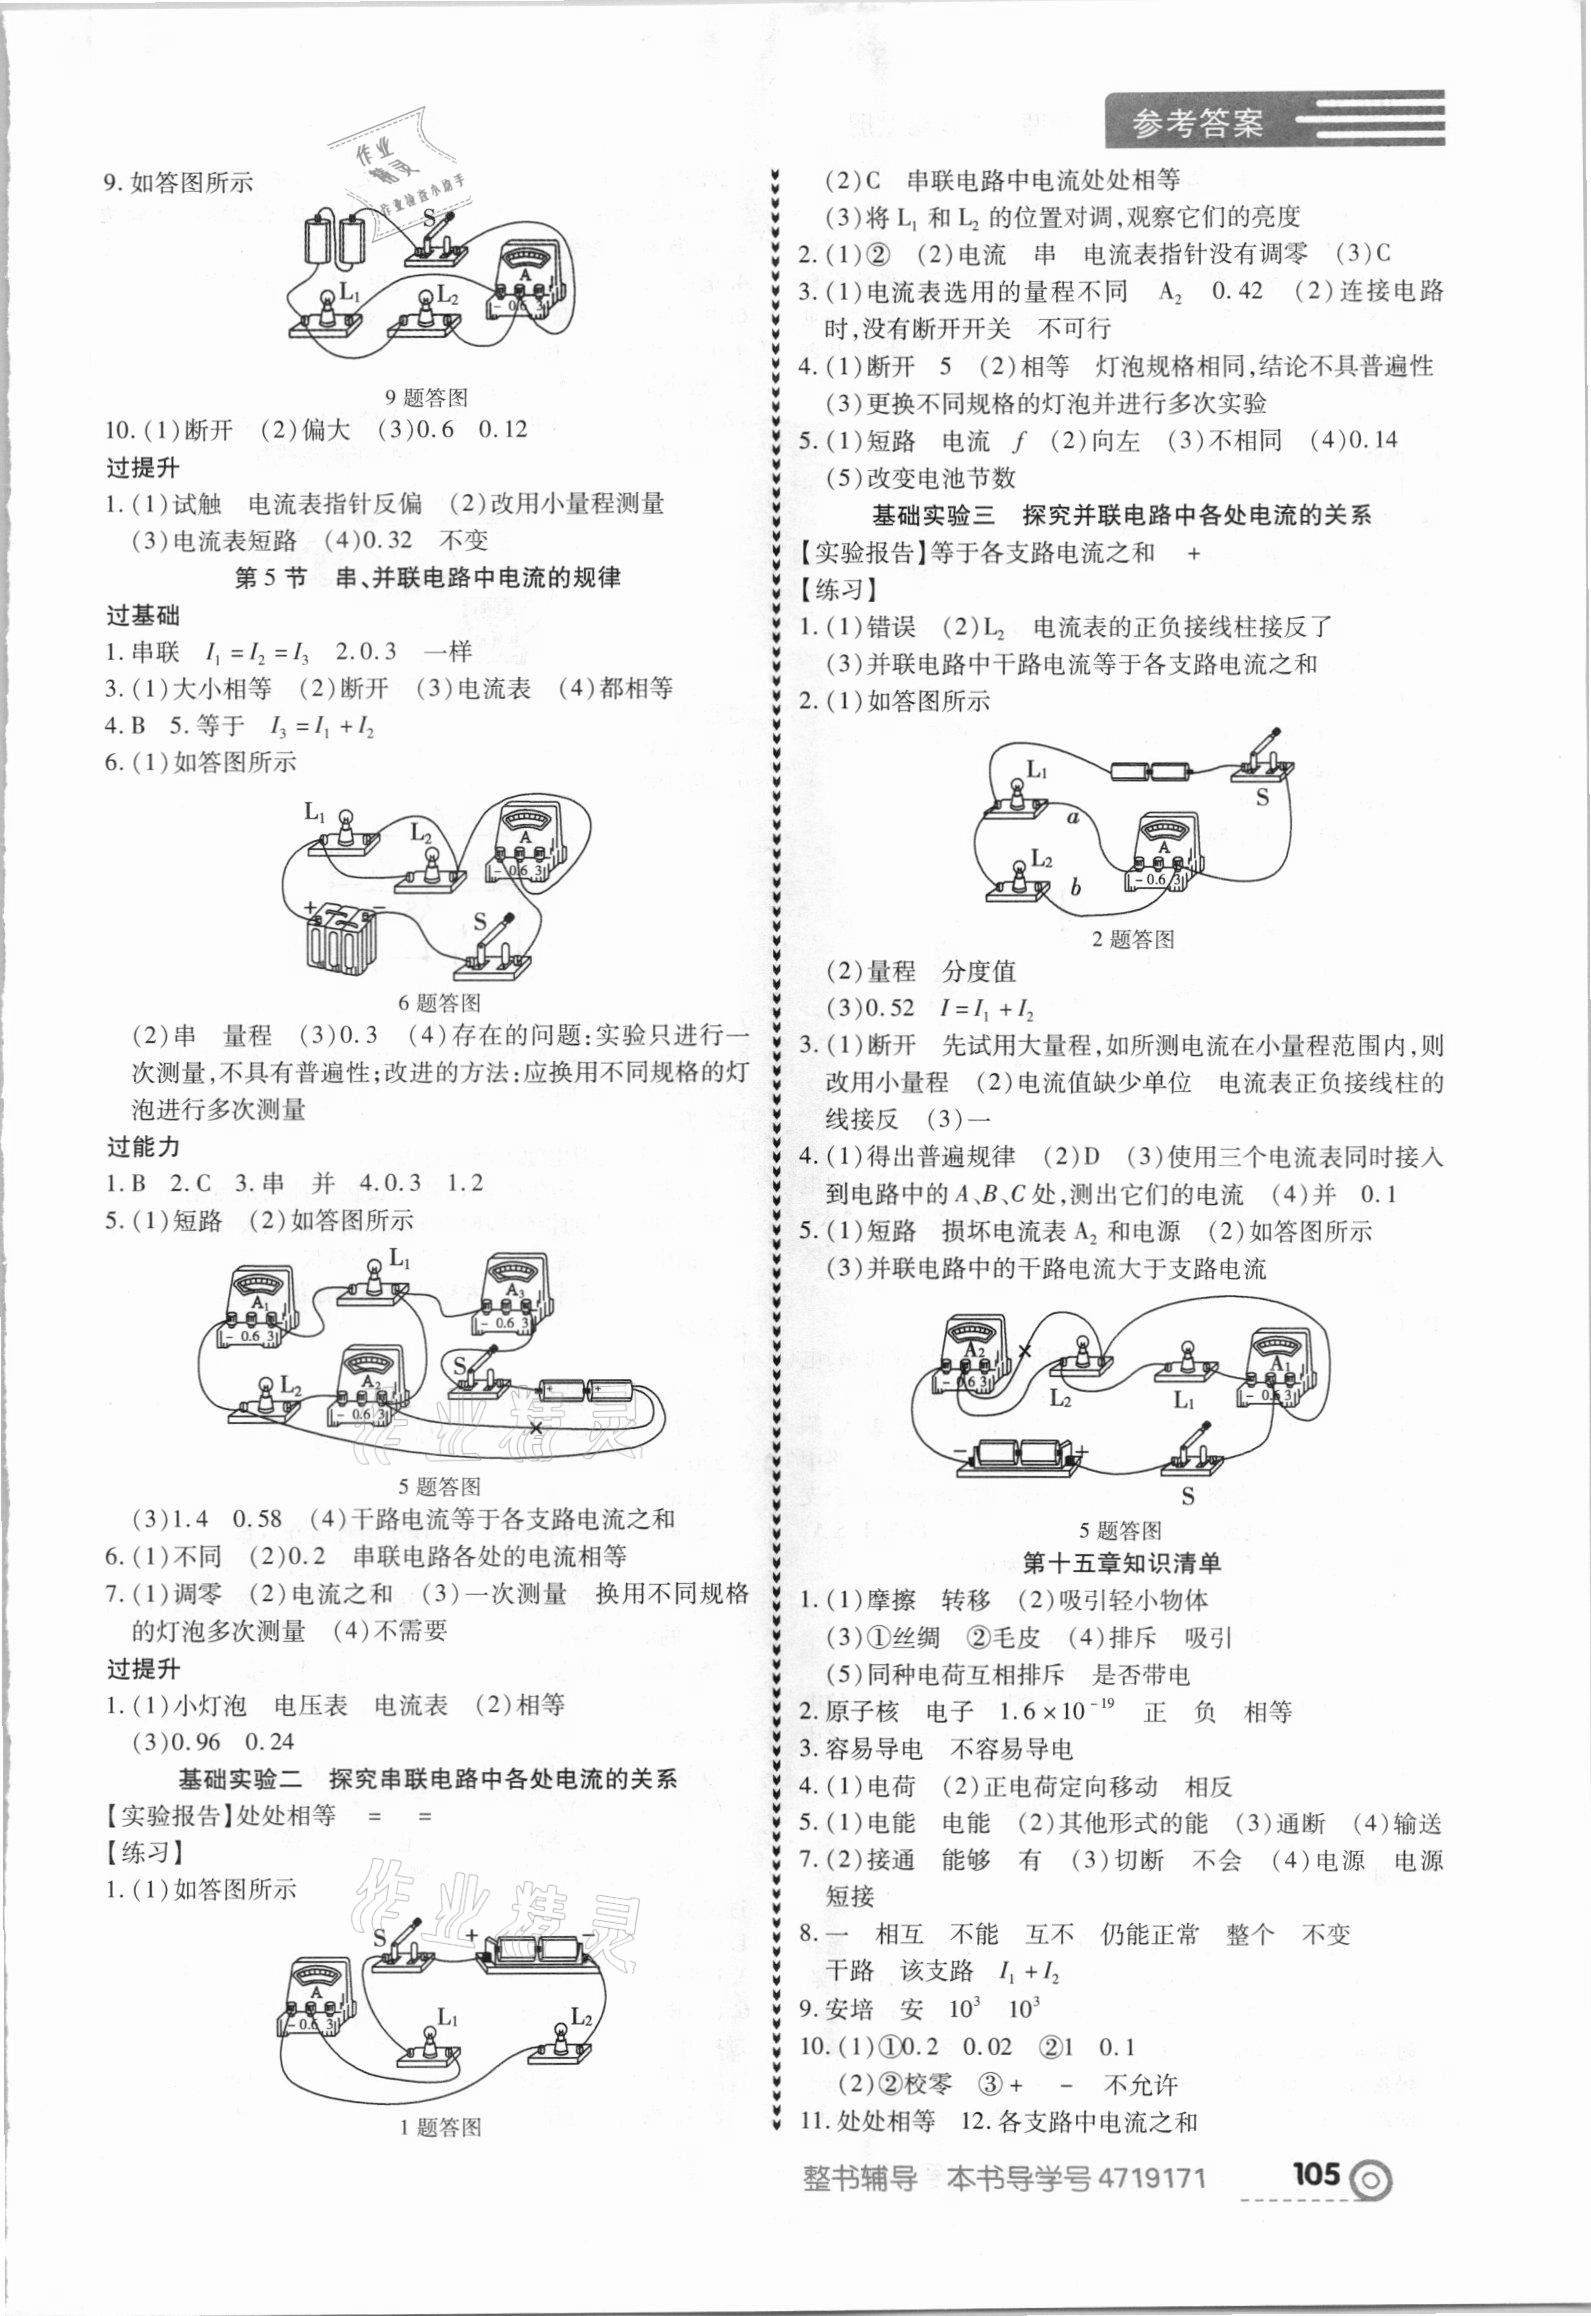 参考答案
9.如答图所示
S
A
L₁
L₂
- 0.6 3
9题答图
10.(1)断开 (2)偏大 (3)0.6 0.12
过提升
1.(1)试触 电流表指针反偏 (2)改用小量程测量
(3)电流表短路 (4)0.32 不变
第5节 串、并联电路中电流的规律
过基础
1.串联 I₁=I₂=I₃ 2.0.3 一样
3.(1)大小相等 (2)断开 (3)电流表 (4)都相等
4.B 5.等于 I₃=I₁+I₂
6.(1)如答图所示
L₁
L₂
A
- 0.6 3
+ -
S
6题答图
(2)串 量程 (3)0.3 (4)存在的问题:实验只进行一
次测量,不具有普遍性;改进的方法:应换用不同规格的灯
泡进行多次测量
过能力
1.B 2.C 3.串 并 4.0.3 1.2
5.(1)短路 (2)如答图所示
L₁
A₁
A₃
- 0.6 3
- 0.6 3
S
L₂
A₂
- 0.6 3
×
5题答图
(3)1.4 0.58 (4)干路电流等于各支路电流之和
6.(1)不同 (2)0.2 串联电路各处的电流相等
7.(1)调零 (2)电流之和 (3)一次测量 换用不同规格
的灯泡多次测量 (4)不需要
过提升
1.(1)小灯泡 电压表 电流表 (2)相等
(3)0.96 0.24
基础实验二 探究串联电路中各处电流的关系
【实验报告】处处相等 = =
【练习】
1.(1)如答图所示
S + -
A
- 0.6 3
L₁
L₂
1题答图
(2)C 串联电路中电流处处相等
(3)将L₁和L₂的位置对调,观察它们的亮度
2.(1)② (2)电流 串 电流表指针没有调零 (3)C
3.(1)电流表选用的量程不同 A₂ 0.42 (2)连接电路
时,没有断开开关 不可行
4.(1)断开 5 (2)相等 灯泡规格相同,结论不具普遍性
(3)更换不同规格的灯泡并进行多次实验
5.(1)短路 电流 f (2)向左 (3)不相同 (4)0.14
(5)改变电池节数
基础实验三 探究并联电路中各处电流的关系
【实验报告】等于各支路电流之和 +
【练习】
1.(1)错误 (2)L₂ 电流表的正负接线柱接反了
(3)并联电路中干路电流等于各支路电流之和
2.(1)如答图所示
L₁
S
a
A
L₂
- 0.6 3
b
2题答图
(2)量程 分度值
(3)0.52 I=I₁+I₂
3.(1)断开 先试用大量程,如所测电流在小量程范围内,则
改用小量程 (2)电流值缺少单位 电流表正负接线柱的
线接反 (3)一
4.(1)得出普遍规律 (2)D (3)使用三个电流表同时接入
到电路中的A、B、C处,测出它们的电流 (4)并 0.1
5.(1)短路 损坏电流表A₂和电源 (2)如答图所示
(3)并联电路中的干路电流大于支路电流
A₂
×
A₁
- 0.6 3
- 0.6 3
L₂
L₁
- +
S
5题答图
第十五章知识清单
1.(1)摩擦 转移 (2)吸引轻小物体
(3)①丝绸 ②毛皮 (4)排斥 吸引
(5)同种电荷互相排斥 是否带电
2.原子核 电子 1.6×10⁻¹⁹ 正 负 相等
3.容易导电 不容易导电
4.(1)电荷 (2)正电荷定向移动 相反
5.(1)电能 电能 (2)其他形式的能 (3)通断 (4)输送
7.(2)接通 能够 有 (3)切断 不会 (4)电源 电源
短接
8.一 相互 不能 互不 仍能正常 整个 不变
干路 该支路 I₁+I₂
9.安培 安 10³ 10³
10.(1)①0.2 0.02 ②1 0.1
(2)②校零 ③+ - 不允许
11.处处相等 12.各支路中电流之和
整书辅导 本书导学号4719171
105
作业精灵
作业检查小助手
作业精灵
作业精灵